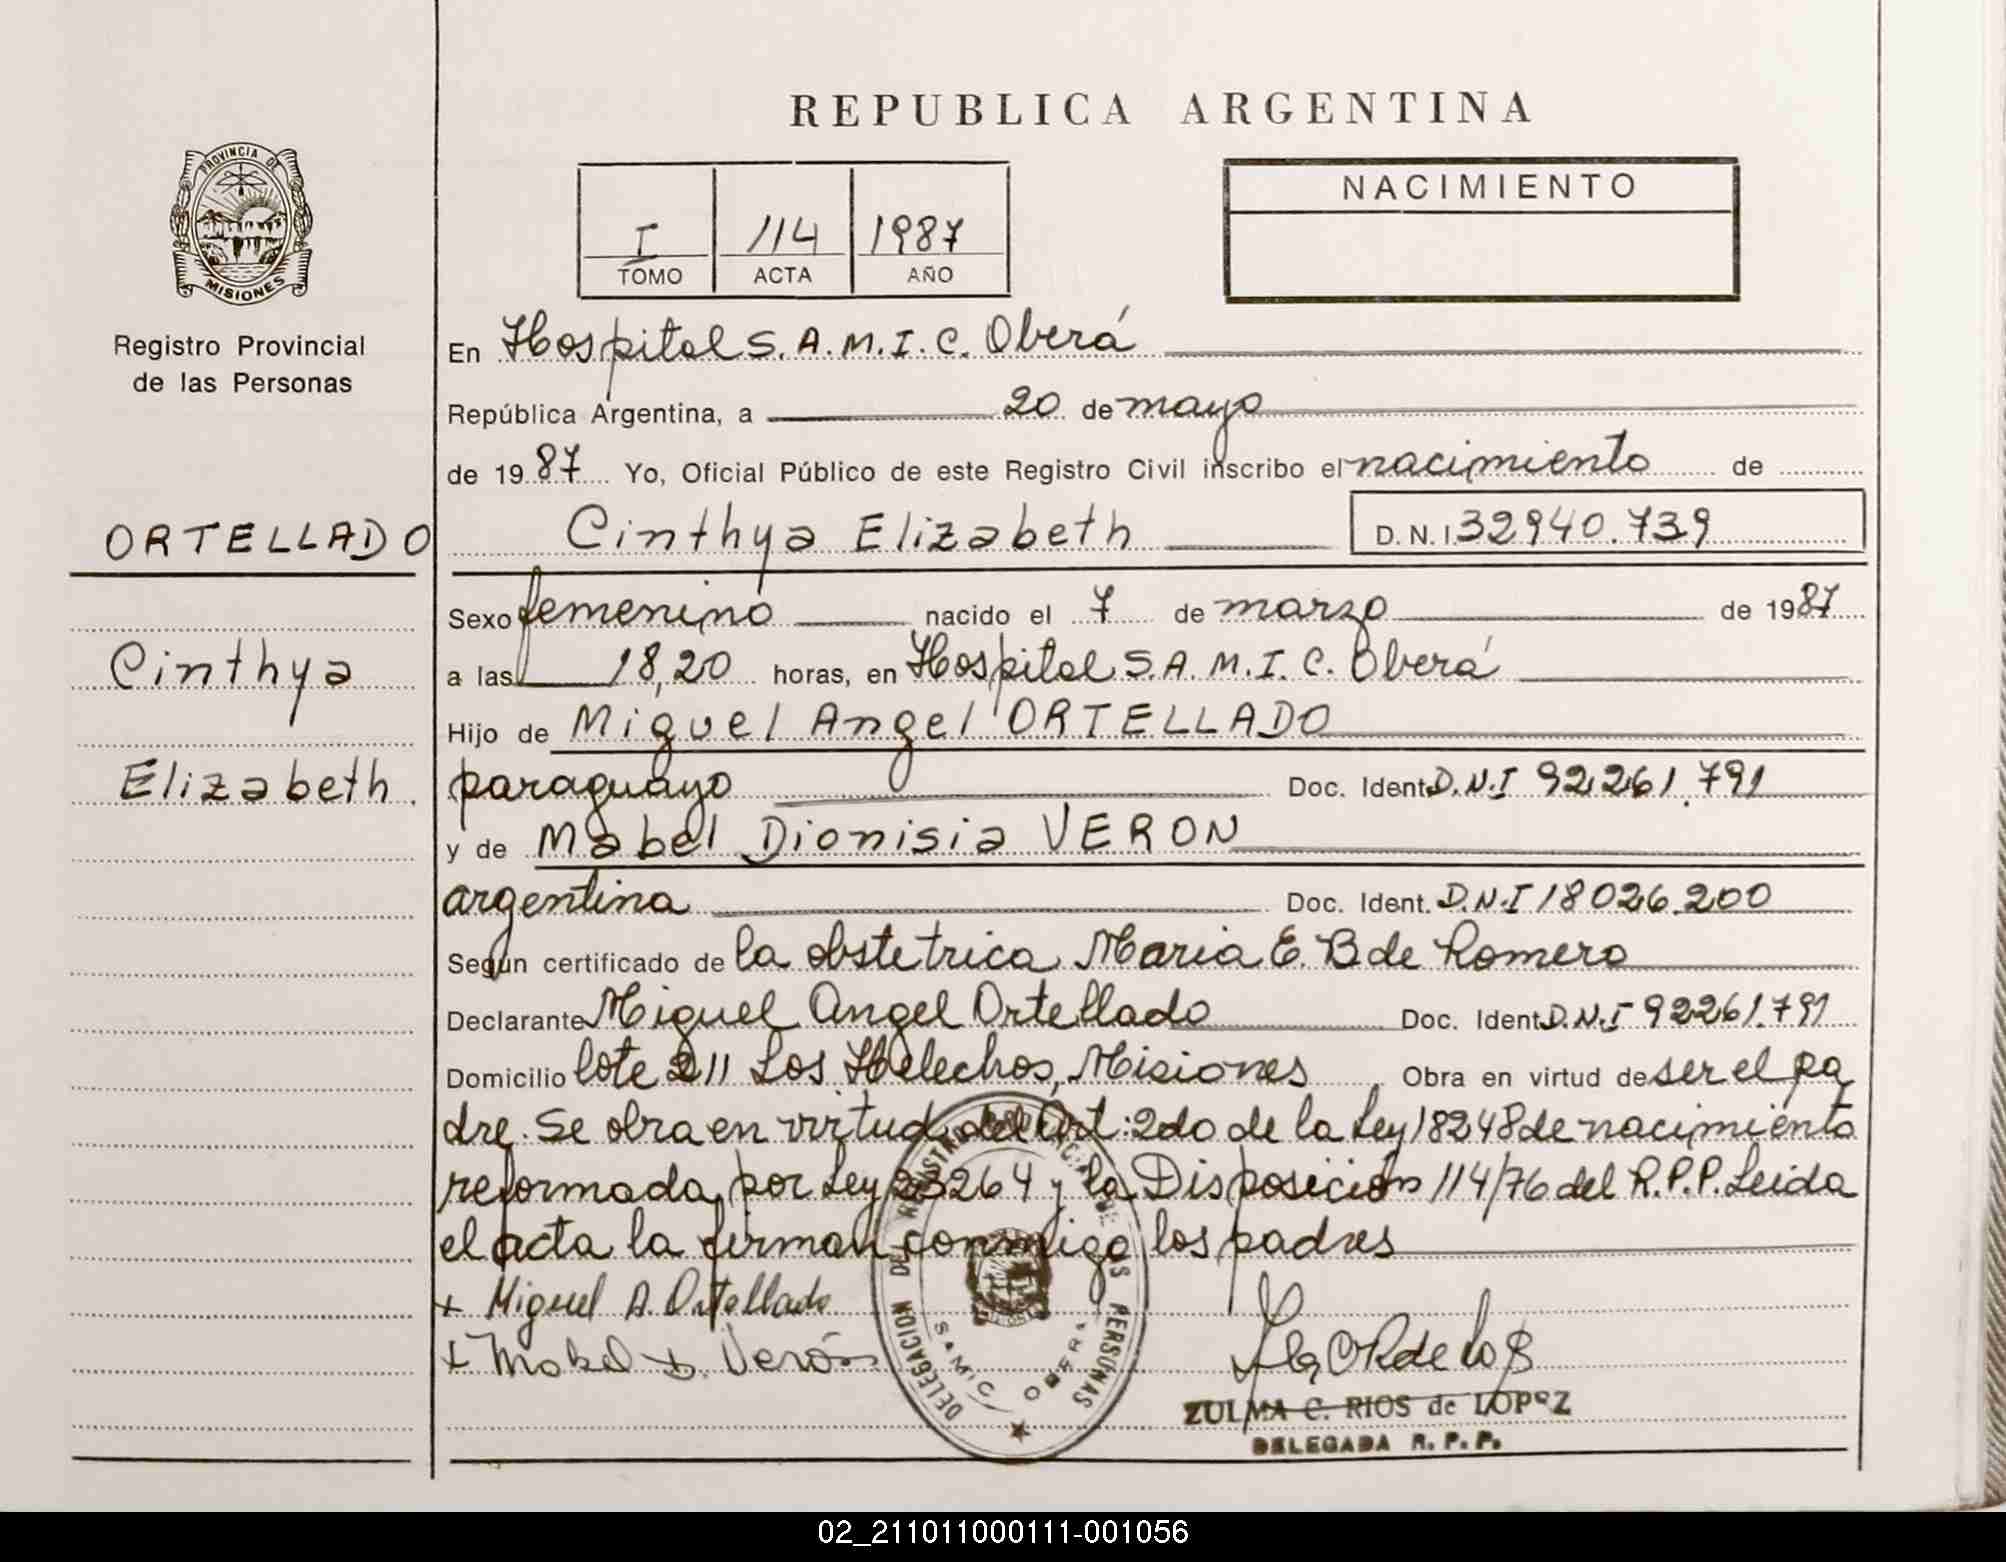 REPUBLICA ARGENTINA
PROVINCIA DE
MISIONES
Registro Provincial
de las Personas
I 114 1987
TOMO ACTA AÑO
NACIMIENTO
En Hospital S.A.M.I.C. Oberá
República Argentina, a 20 de mayo
de 1987 Yo, Oficial Público de este Registro Civil inscribo el nacimiento de
ORTELLADO
Cinthya Elizabeth D.N.I 32940.739
Cinthya
Elizabeth
Sexo femenino nacido el 7 de marzo de 1987
a las 18,20 horas, en Hospital S.A.M.I.C. Oberá
Hijo de Miguel Angel ORTELLADO
paraguayo Doc. Ident. D.N.I 92261.791
y de Mabel Dionisia VERON
argentina Doc. Ident. D.N.I 18026.200
Según certificado de la obstetrica Maria E. B de Romero
Declarante Miguel Angel Ortellado Doc. Ident. D.N.I 92261.791
Domicilio lote 211 Los Helechos, Misiones Obra en virtud de ser el pa
dre. Se obra en virtud del Art: 2do de la Ley 18248 de nacimiento
reformada por Ley 23264 y la Disposición 114/76 del R.P.P. Leida
el acta la firman conmigo los padres
+ Miguel A. Ortellado
+ Mabel D. Verón
DELEGACION DEL REGISTRO PROVINCIAL DE LAS PERSONAS
SAMIC OBERA
ZULMA C. RIOS de LOPEZ
DELEGADA R. P. P.
02_211011000111-001056